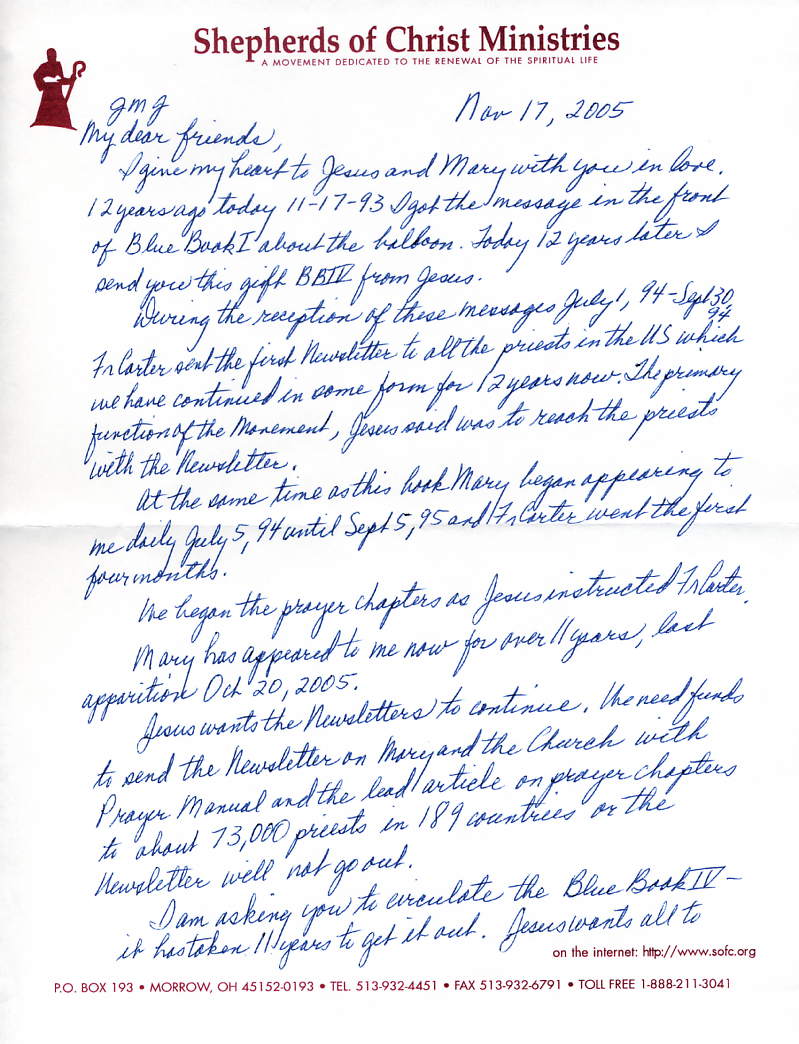 Shepherds of Christ Ministries
A MOVEMENT DEDICATED TO THE RENEWAL OF THE SPIRITUAL LIFE
JMJ
Nov 17, 2005
My dear friends,
I give my heart to Jesus and Mary with you in love.
12 years ago today 11-17-93 I got the message in the front
of Blue Book I about the balloon. Today 12 years later I
send you this gift BBIV from Jesus.
During the reception of these messages July 1, 94-Sept 30,
94
Fr Carter sent the first Newsletter to all the priests in the US which
we have continued in some form for 12 years now. The primary
function of the Movement, Jesus said was to reach the priests
with the Newsletter.
At the same time as this book Mary began appearing to
me daily July 5, 94 until Sept 5, 95 and Fr Carter went the first
four months.
We began the prayer chapters as Jesus instructed Fr Carter.
Mary has appeared to me now for over 11 years, last
apparition Oct 20, 2005.
Jesus wants the Newsletters to continue. We need funds
to send the Newsletter on Mary and the Church with
Prayer Manual and the lead article on prayer chapters
to about 73,000 priests in 189 countries or the
Newsletter will not go out.
I am asking you to circulate the Blue Book IV –
it has taken 11 years to get it out. Jesus wants all to
on the internet: http://www.sofc.org
P.O. BOX 193 • MORROW, OH 45152-0193 • TEL. 513-932-4451 • FAX 513-932-6791 • TOLL FREE 1-888-211-3041